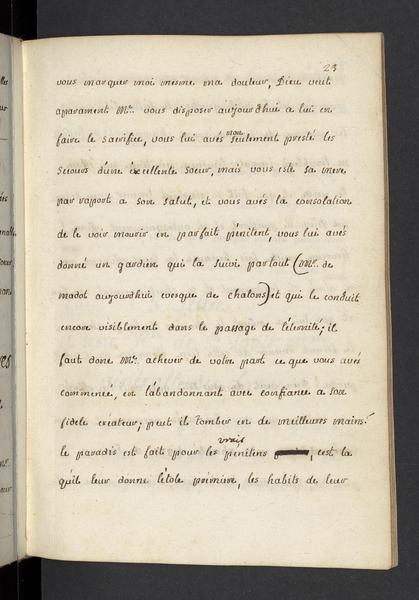 23
vous marquer moi mesme ma douleur, Dieu veut
aparament Me. vous disposer aujourdhui a lui en
faire le sacrifice, vous lui avés non seulement presté les
secours d'une excellente soeur, mais vous esté sa mere
par raport a son salut, et vous avés la consolation
de le voir mourir en parfait pénitent, vous lui avés
donné un gardien qui la suivi partout (Mr. de
madot aujourdhui evesque de chalons) et qui le conduit
encore visiblement dans le passage de l'éternité; il
faut donc Me. achever de votre part ce que vous avés
commencé, en l'abandonnant avec confiance a son
fidele créateur; peut il tomber en de meilleures mains?
le paradis est fait pour les vrais pénitens, cest la
qu'il leur donne l'étole premiere, les habits de leur